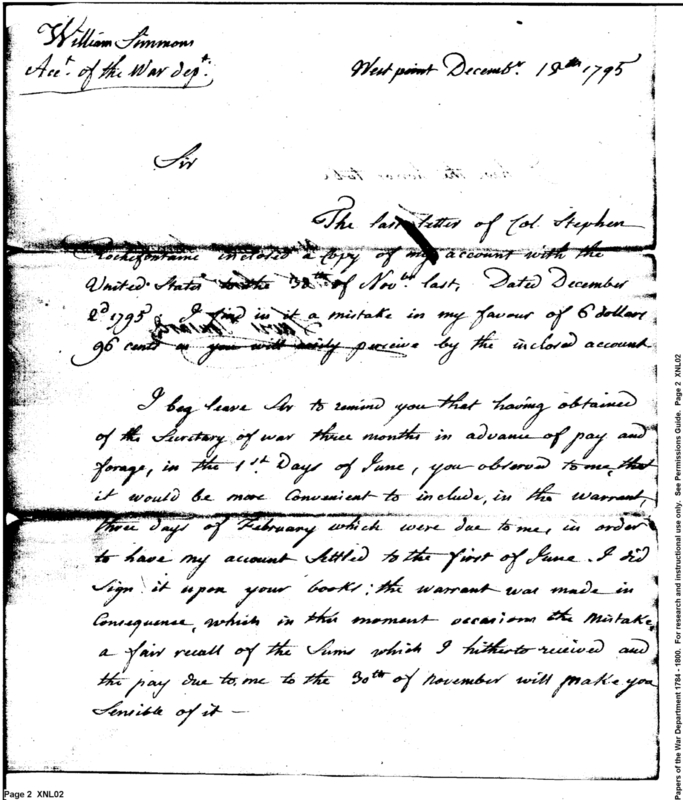 William Simmons
Acct. of the War dept.
West point Decembr. 18th 1795
Sir
The last letter of Col. Stephen
Rochefontaine inclosed a Copy of my account with the
United States to the 30th of Novbr. last, Dated December
2d 1795. I find in it a mistake in my favour of 6 dollars
96 cents as you will easily perceive by the inclosed account
I beg leave Sir to remind you that having obtained
of the Secretary of war three months in advance of pay and
forage, in the 1st. Days of June, you observed to me, that
it would be more Convenient to include, in the warrant,
three days of February which were due to me, in order
to have my account Settled to the first of June. I did
Sign it upon your books; the warrant was made in
Consequence, which in this moment occasions the Mistake,
a fair recall of the Sums which I hitherto received and
the pay due to me to the 30th of November will make you
Sensible of it —
Page 2 XNL02
Papers of the War Department 1784 - 1800. For research and instructional use only. See Permissions Guide. Page 2 XNL02